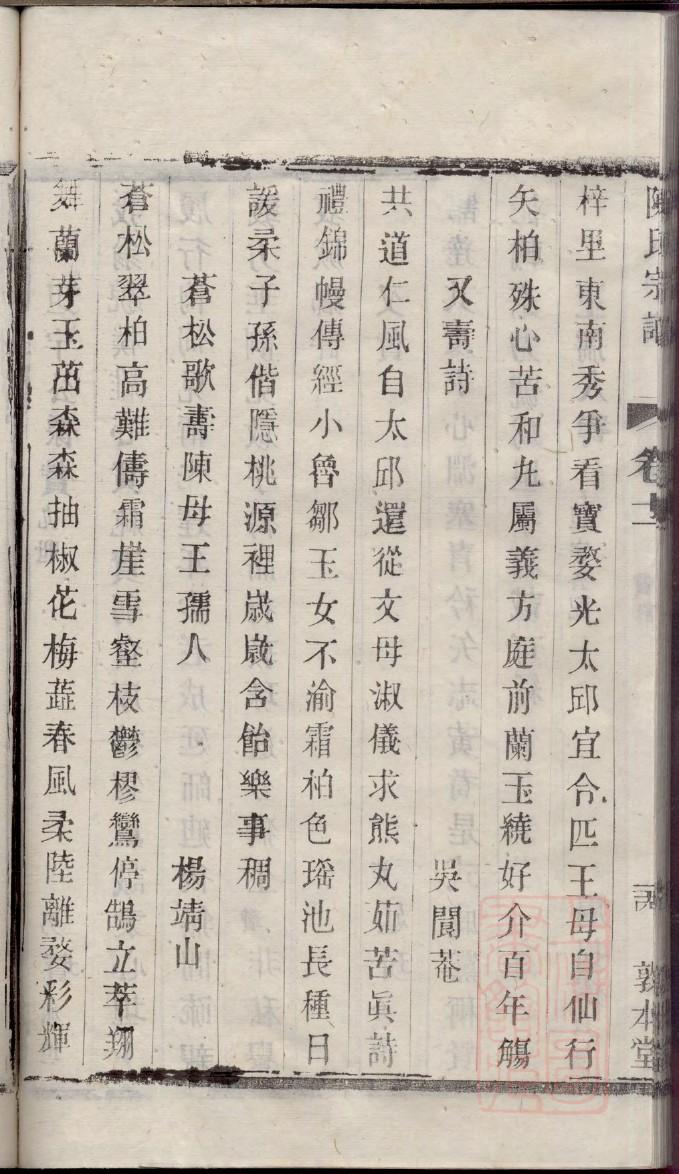 陳氏宗譜 卷十二 敦本堂
梓里東南秀爭看寶婺光太邱宜令匹王母自仙行
矢柏殊心苦和丸屬義方庭前蘭玉繞好介百年觴
又壽詩 吳聞菴
共道仁風自太邱還從文母淑儀求熊丸茹苦眞詩
禮錦幔傳經小魯鄒玉女不渝霜柏色瑶池長種日
諼柔子孫偕隱桃源裡嵗嵗含飴樂事稠
蒼松歌壽陳母王孺人 楊靖山
蒼松翠柏高難儔霜崖雪壑枝鬱樛鸞停鵠立萃翔
舞蘭芽玉茁森森抽椒花梅蕋春風柔陸離婺彩輝